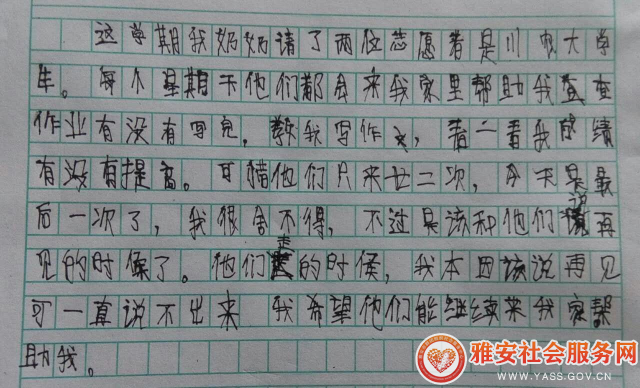 这学期我奶奶请了两位志愿者是川农大学
生。每个星期天他们都会来我家里帮助我查查
作业有没有写完，教我写作文，看一看我成绩
有没有提高。可惜他们只来廿二次，今天是最
后一次了，我很舍不得，不过是该和他们说再
见的时候了。他们走的时候，我本因该说再见
可一直说不出来 我希望他们能继续来我家帮
助我。
雅安社会服务网
WWW.YASS.GOV.CN